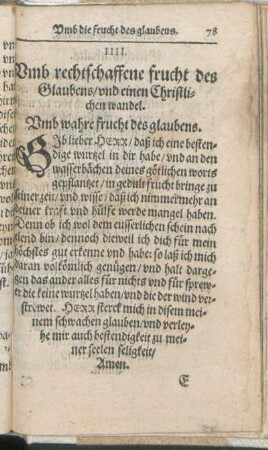 Vmb die frucht des glaubens. 78
IIII.
Vmb rechtschaffene frucht des
Glaubens/ vnd einen Christli-
chen wandel.
Vmb wahre frucht des glaubens.
GIb lieber HERR/ daß ich eine besten-
dige wurtzel in dir habe/ vnd an den
wasserbächen deines götlichen worts
gepflantzet/ in gedult frucht bringe zu
seiner zeit/ vnd wisse/ daß ich nimmermehr an
deiner kraft vnd hülffe werde mangel haben.
Denn ob ich wol dem eusserlichen schein nach
elend bin/ dennoch dieweil ich dich für mein
höchstes gut erkenne vnd habe: so laß ich mich
daran volkömlich genügen/ vnd halt darge-
gen das ander alles für nichts vnd für sprew-
er die keine wurtzel haben/ vnd die der wind ver-
strewet. HERR sterck mich in disem mei-
nem schwachen glauben/ vnd verley-
he mir auch bestendigkeit zu mei-
ner seelen seligkeit/
Amen.
E